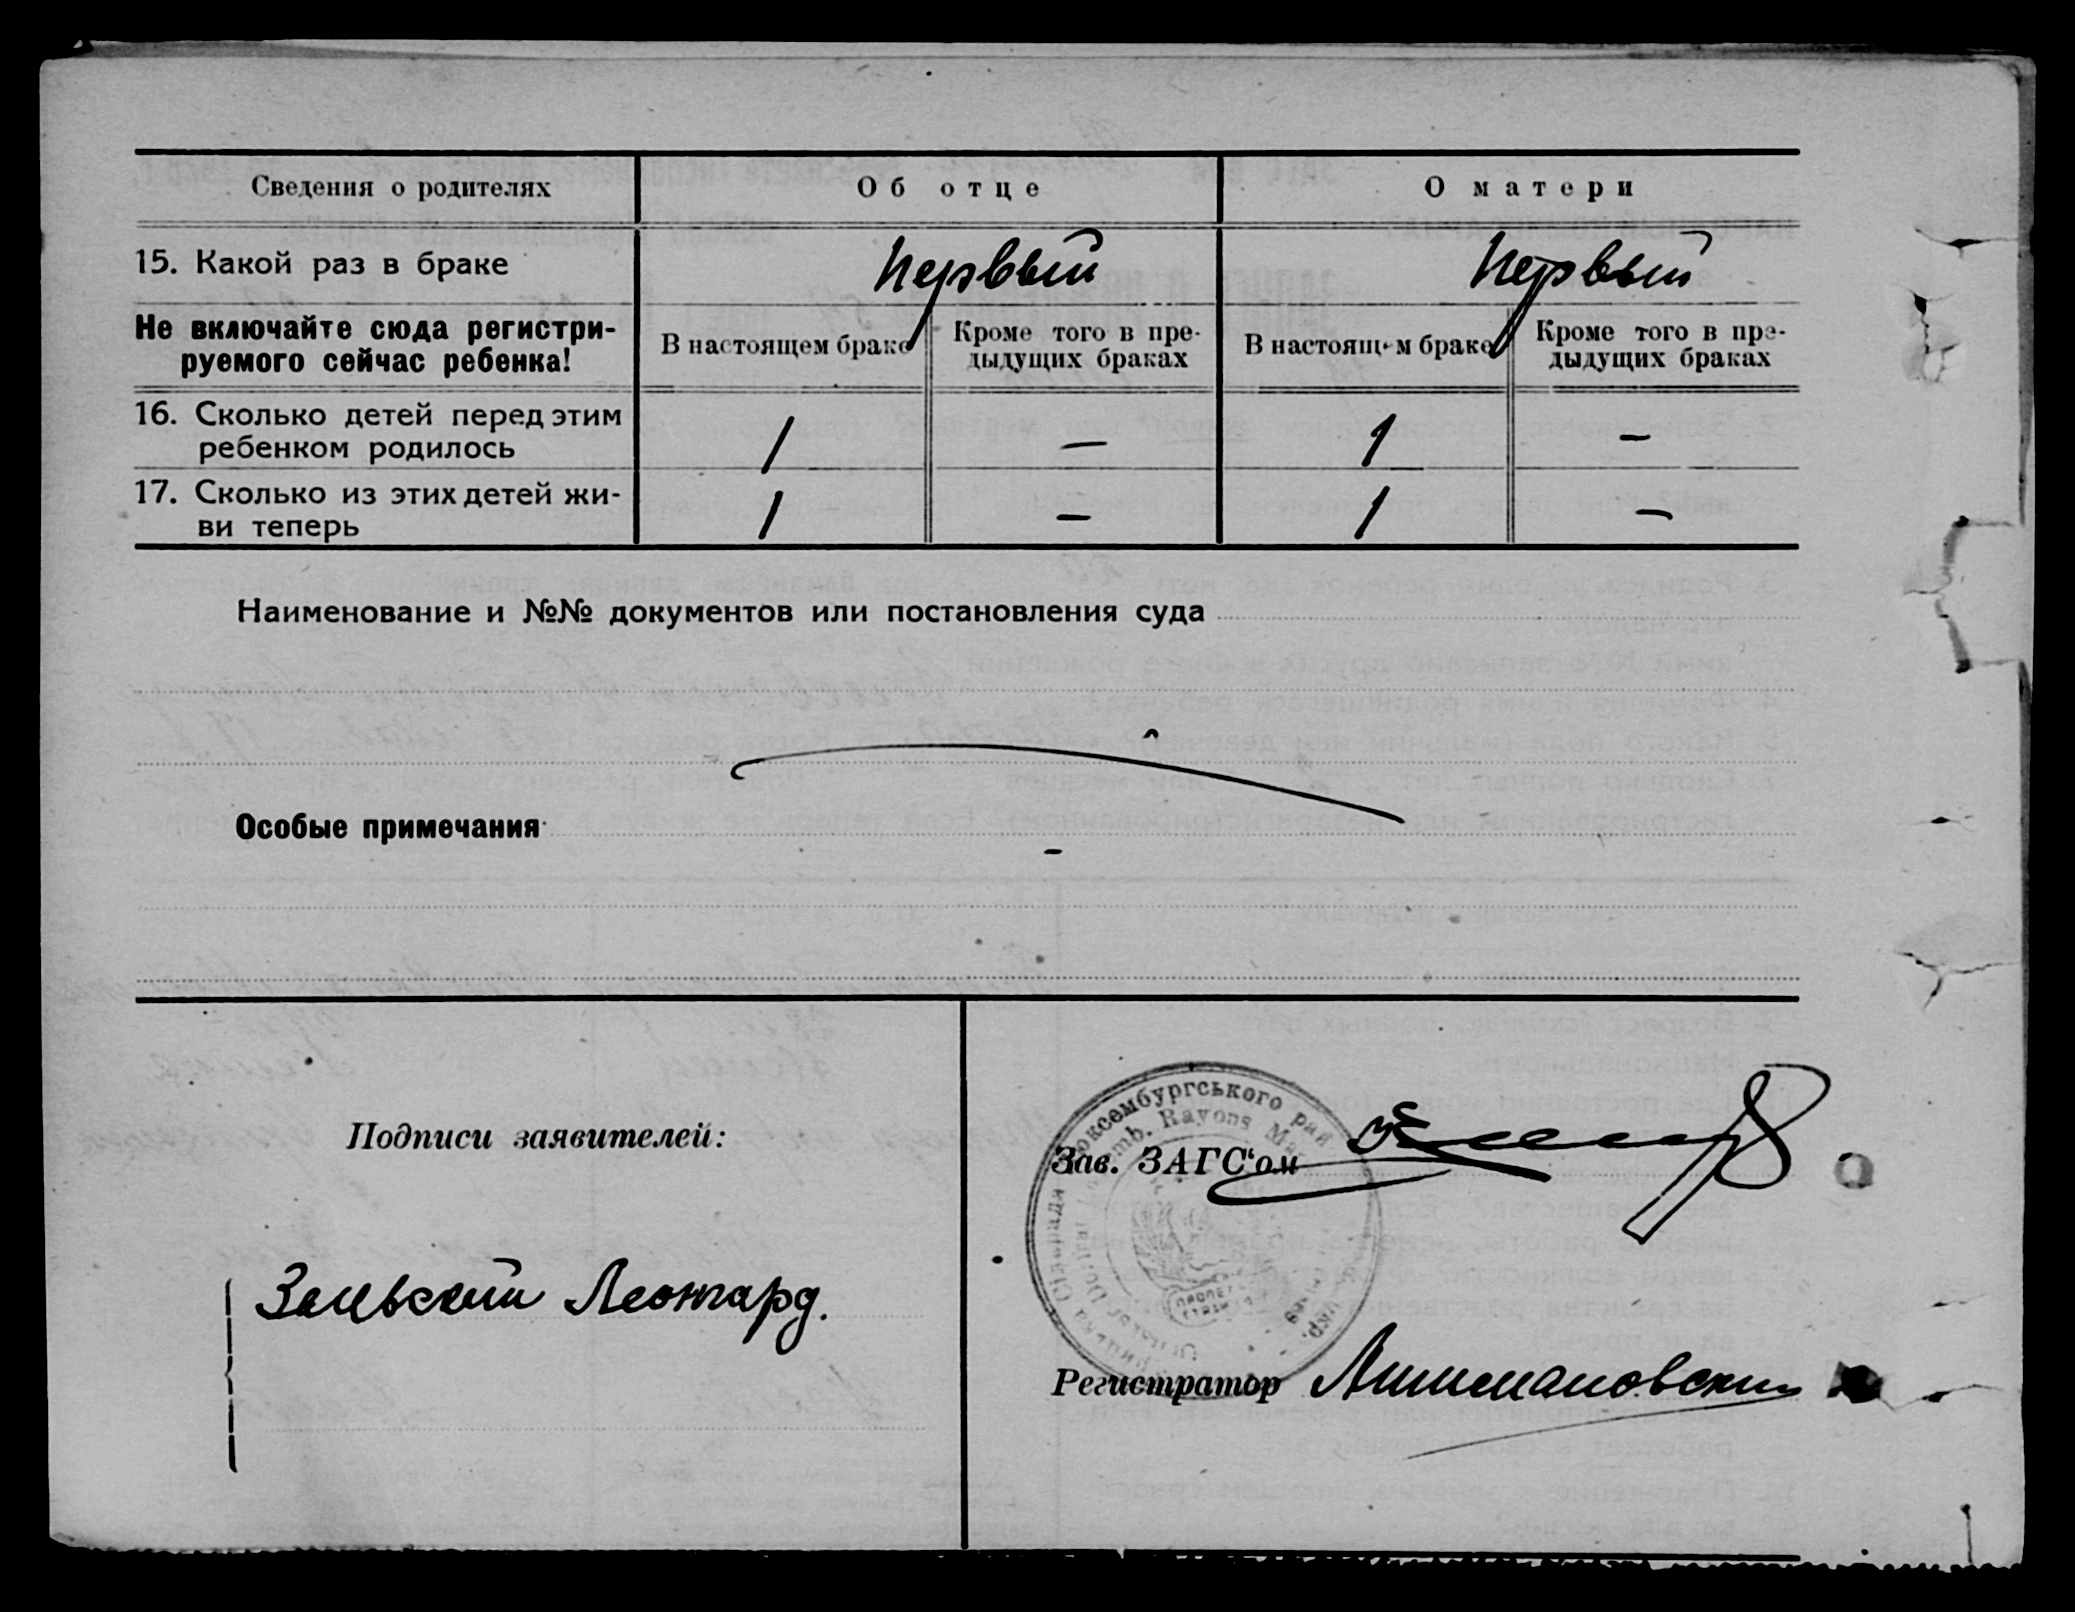 Сведения о родителях
Об отце
О матери
15. Какой раз в браке
первый
первый
Не включайте сюда регистри-
руемого сейчас ребенка!
В настоящем браке
Кроме того в пре-
дыдущих браках
В настоящем браке
Кроме того в пре-
дыдущих браках
16. Сколько детей перед этим
ребенком родилось
1
—
1
—
17. Сколько из этих детей жи-
ви теперь
1
—
1
—
Наименование и №№ документов или постановления суда
Особые примечания
Подписи заявителей:
Леонгард.
Зав. ЗАГС‘ом
Регистратор
ксембургського рай
Rayons